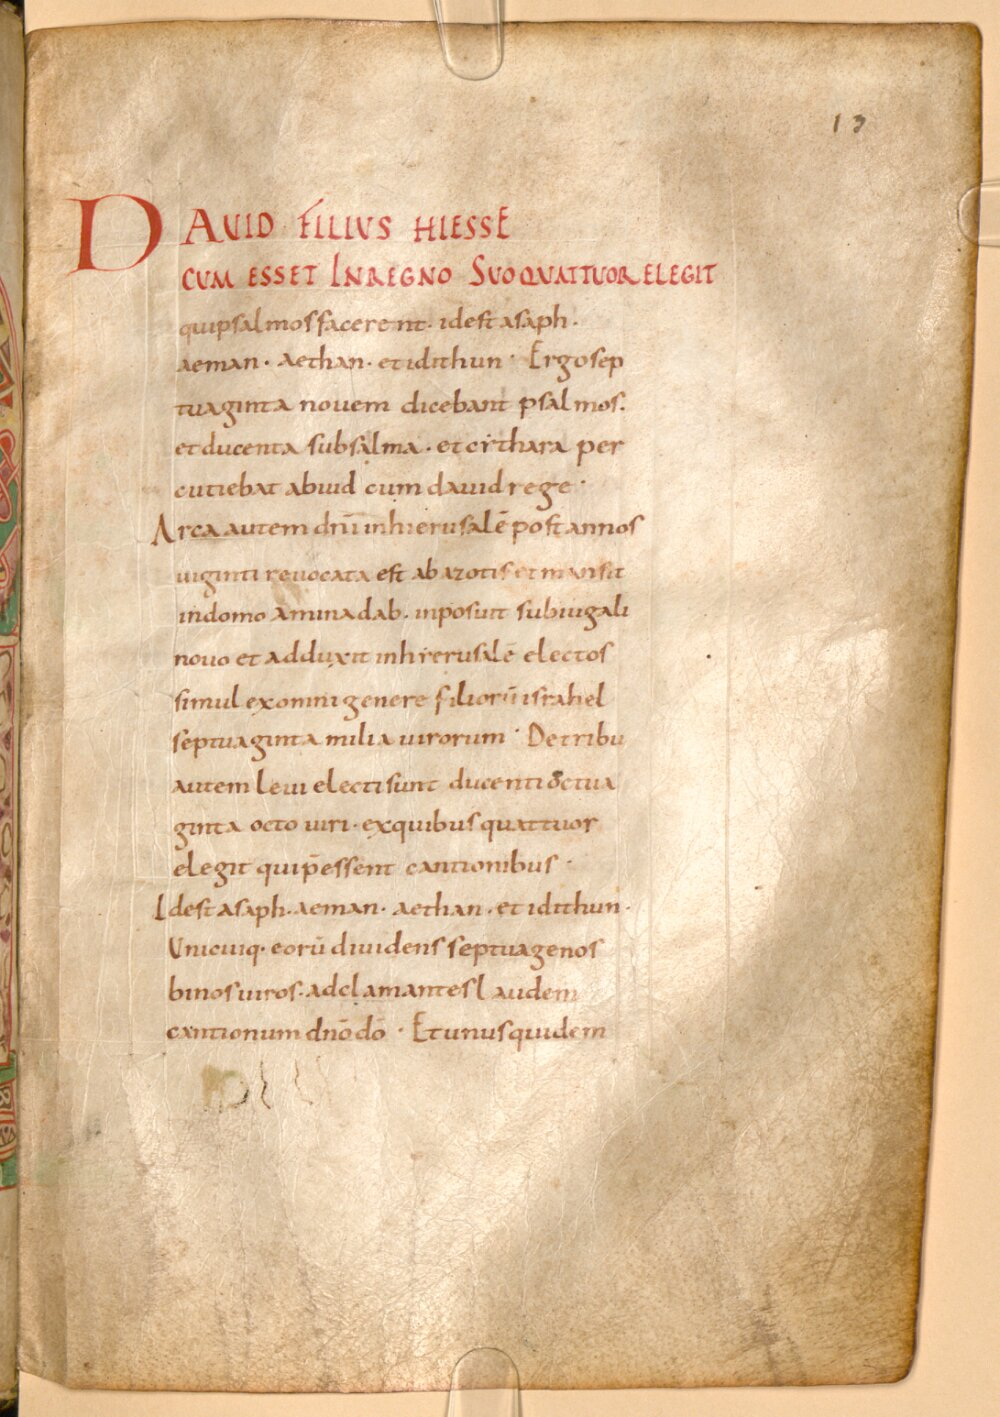 13
DAVID FILIUS HIESSE
CUM ESSET IN REGNO SUO QUATTUOR ELEGIT
qui psalmos facerent · id est asaph ·
aeman · aethan · et idithun · Ergo sep
tuaginta nouem dicebant psalmos.
et ducenta subsalma · et cithara per
cutiebat abiud cum dauid rege ·
Arca autem dñi in hierusalē post annos
uiginti reuocata est ab azotis et mansit
in domo aminadab · inposuit subiugali
nouo et adduxit in hierusalē electos
simul ex omni genere filiorū israhel
septuaginta milia uirorum · De tribu
autem leui electi sunt ducenti octua
ginta octo uiri · ex quibus quattuor
elegit qui p̄essent cantionibus ·
Id est asaph · aeman · aethan · et idithun ·
Unicuiq· eorū diuidens septuagenos
binos uiros · adclamantes laudem
cantionum dño dō · Et unus quidem